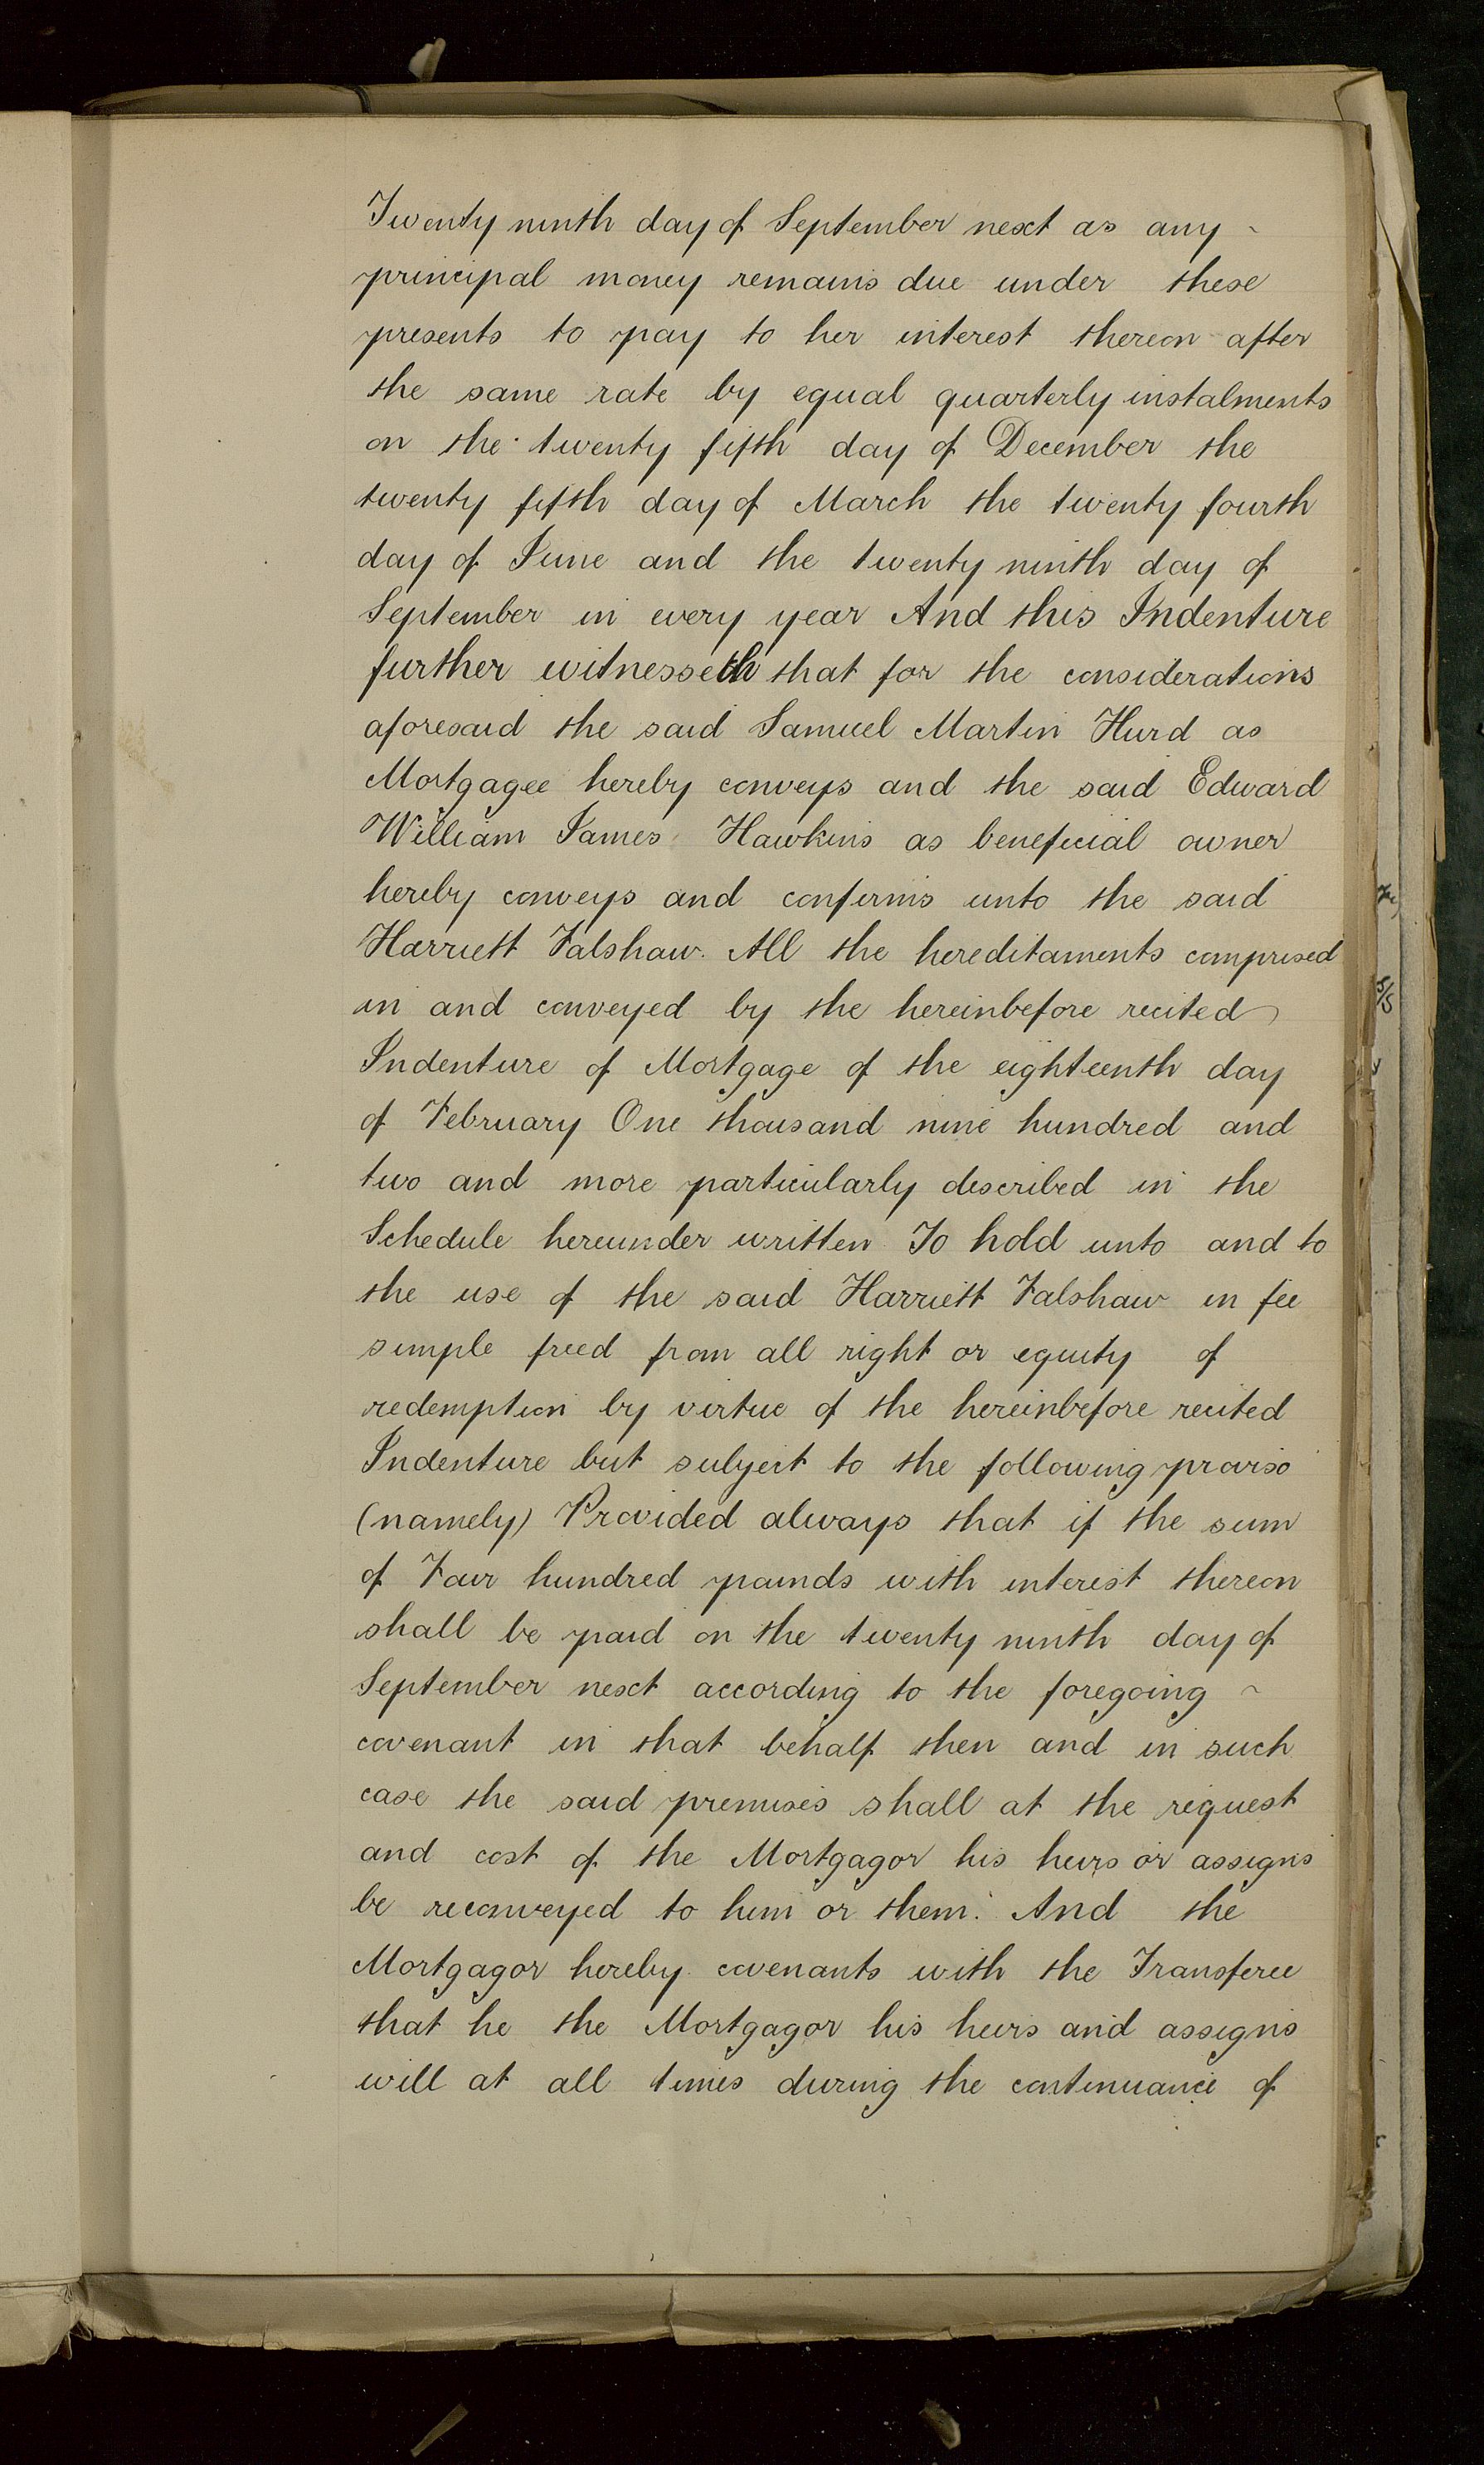 Twenty ninth day of September next as any ~
principal money remains due under these
presents to pay to her interest thereon after
the same rate by equal quarterly instalments
on the twenty fifth day of December the
twenty fifth day of March the twenty fourth
day of June and the twenty ninth day of
September in every year And this Indenture
further witnesseth that for the considerations
aforesaid the said Samuel Martin Hurd as
Mortgagee hereby conveys and the said Edward
William James Hawkins as beneficial owner
hereby conveys and confirms unto the said
Harriett Falshaw. All the hereditaments comprised
in and conveyed by the hereinbefore recited
Indenture of Mortgage of the eighteenth day
of February One thousand nine hundred and
two and more particularly described in the
Schedule hereunder written To hold unto and to
the use of the said Harriett Falshaw in fee
simple freed from all right or equity of
redemption by virtue of the hereinbefore recited
Indenture but subject to the following proviso
(namely) Provided always that if the sum
of Four hundred pounds with interest thereon
shall be paid on the twenty ninth day of
September next according to the foregoing ~
covenant in that behalf then and in such
case the said premises shall at the request
and cost of the Mortgagor his heirs or assigns
be reconveyed to him or them. And the
Mortgagor hereby covenants with the Transferee
that he the Mortgagor his heirs and assigns
will at all times during the continuance of